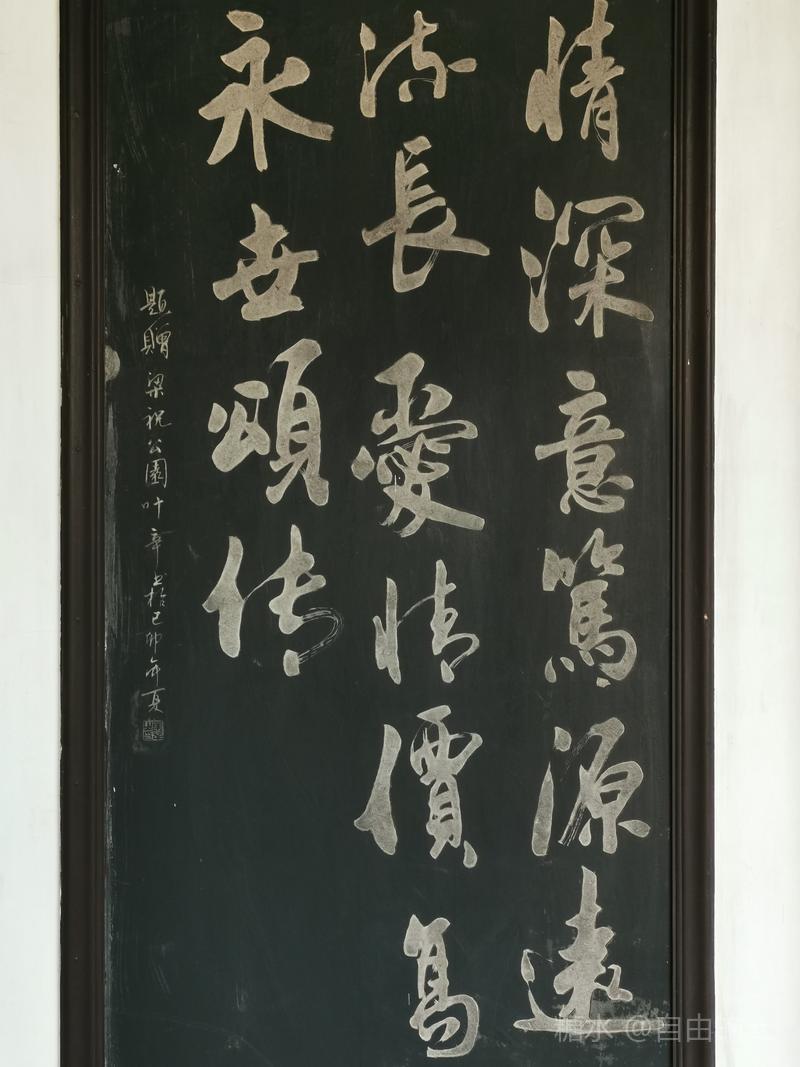 情深意篤源遠
流長愛情價高
永世頌传
題贈梁祝公園叶辛书於己卯年夏
糖水 @自由